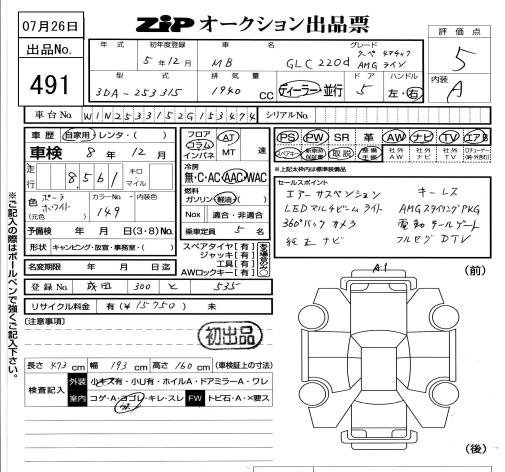 07月26日
ZIP オークション出品票
評価点
5
出品No.
491
年式 初年度登録 車名 グレード
5年12月 MB GLC220d クーペ 4マチック AMGライン
内装
A
型式 排気量 ドア ハンドル
3DA-253315 1940 CC ディーラー・並行 5 左・右
車台No. W1N2533152G153474 シリアルNo.
車歴 自家用・レンタ・( )
車検 8年12月
走行 8,561 キロ マイル
色 ポーラーホワイト (元色) カラーNo. 149 内装色
予備検 年 月 日(3・8)No.
形状 キャンピング・放宣・事務室・( )
名変期限 年 月 日迄
フロア コラム インパネ AT MT 速
冷房
無・C・AC・AAC・WAC
燃料
ガソリン・軽油・( )
Nox 適合・非適合
乗車定員 5 名
スペアタイヤ【有】
ジャッキ【有】
工具【有】
AWロックキー【有】
PS PW SR 革 AW ナビ TV エアB
スペアキー 保証書 取説 整備手帳 社外AW 社外ナビ 社外TV Dチューナー(地・外割引)
※上記太枠内は標準装備品
セールスポイント
エアーサスペンション キーレス
LEDマルチビームライト AMGスタイリングPKG
360°バックカメラ 電動テールゲート
純正ナビ フルセグDTV
登録No. 成田 300 と 535
リサイクル料金 有(¥15750) 未
(注意事項)
初出品
長さ 473 cm 幅 193 cm 高さ 160 cm (車検証上の寸法)
検査記入 外装 小キズ有・小U有・ホイルA・ドアミラーA・ワレ
室内 コゲ・A・ヨゴレ・キレ・スレ FW トビ石・A・×要ス
A1
(前)
(後)
※ご記入の際はボールペンで強くご記入下さい。